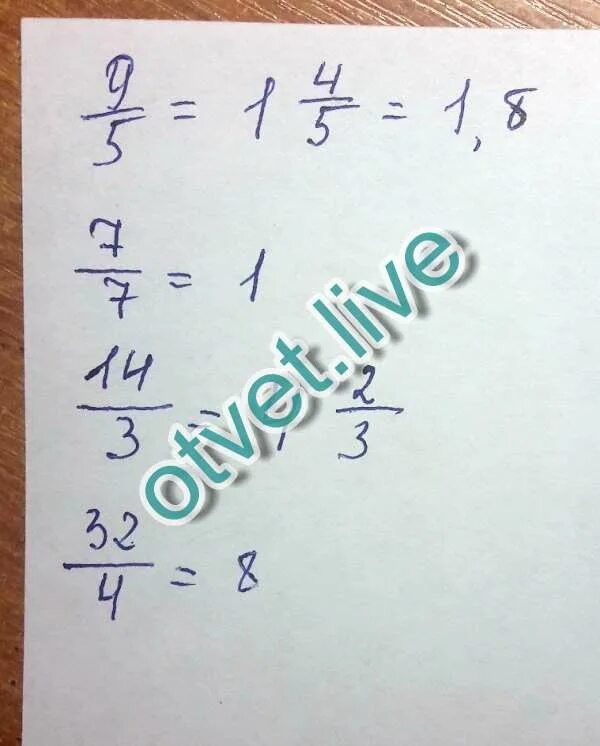 9/5 = 1 4/5 = 1,8
7/7 = 1
14/3 = 2/3
32/4 = 8
otvet.live